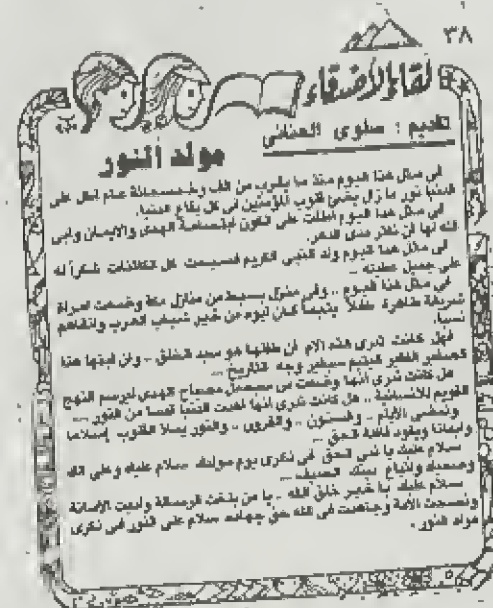 ٣٨
لقاء الأصدقاء
تقديم : سلوى العنانى
مولد النور
فى مثل هذا اليوم منذ ما يقرب من الف وخمسمائة عام اطل على
الدنيا نور ما زال يضئ قلوب المؤمنين فى كل بقاع الدنيا.
فى مثل هذا اليوم أطلت على الكون ابتسامة الهدى والايمان وابى
الله لها ان تنتشر مدى الدهر.
فى مثل هذا اليوم ولد النبى الكريم فسبحت كل الكائنات شكراً له
على جميل عطيته ..
فى مثل هذا اليوم .. وفى منزل بسيط من منازل مكة وضعت امرأة
شريفة طاهرة طفلاً يتيماً كان ابوه من خير شباب العرب وانقاهم
نسبا.
فهل كانت تدرى هذه الام ان طفلها هو سيد الخلق .. وان ابنها هذا
الصغير الفقير اليتيم سيغير وجه التاريخ ..
هل كانت تدرى أنها وضعت فى مصباح الهدى ليرسم النهج
القويم للانسانية .. هل كانت تدرى أنها اهدت الدنيا قبسا من النور ..
وتمضى الأيام .. والسنون .. والقرون .. والنور يملأ القلوب إسلاما
وايمانا ويقود قافلة الحق ..
سلام عليك يا نبى الحق فى ذكرى يوم مولدك سلام عليك وعلى آلك
وصحبك واتباع دينك الحنيف ..
سلام عليك يا خير خلق الله .. يا من بلغت الرسالة واديت الامانة
ونصحت الأمة وجاهدت فى الله حق جهاده سلام على النور فى ذكرى
مولد النور .